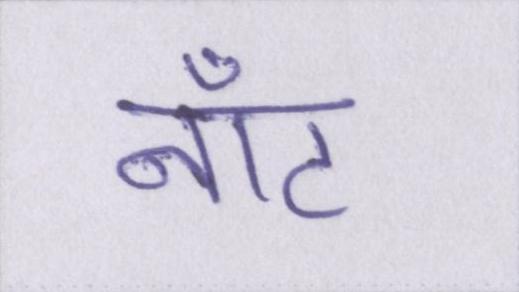 नॉट